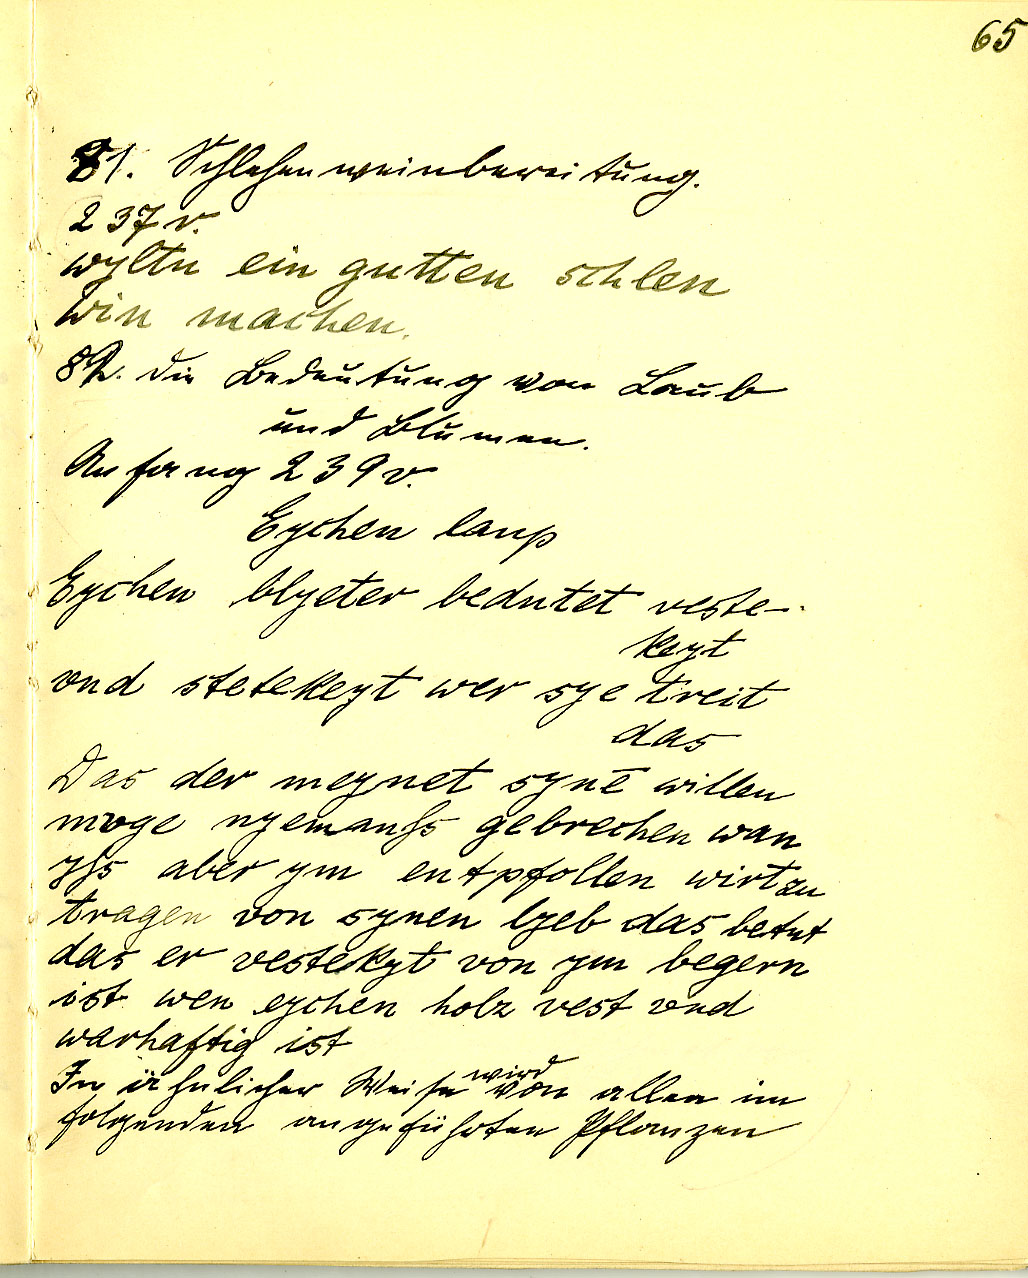 65
81. Schlehenweinbereitung.
237v.
wyltu ein gutten schlen
win machen.
82. Die Bedeutung von Laub
und Blumen.
Anfang 239v.
Eychen laup
Eychen blyeter bedutet veste-
keyt
vnd stetekeyt wer sye treit
das
Das der meynet synē willen
moge nyemanß gebrechen wan
yß aber ym entpfollen wirt zu
tragen von synen lyeb das betut
das er vestekyt von ym begern
ist wen eychen holz vest vnd
warhaftig ist
In ähnlicher Weise wird von allen im
folgenden angeführten Pflanzen